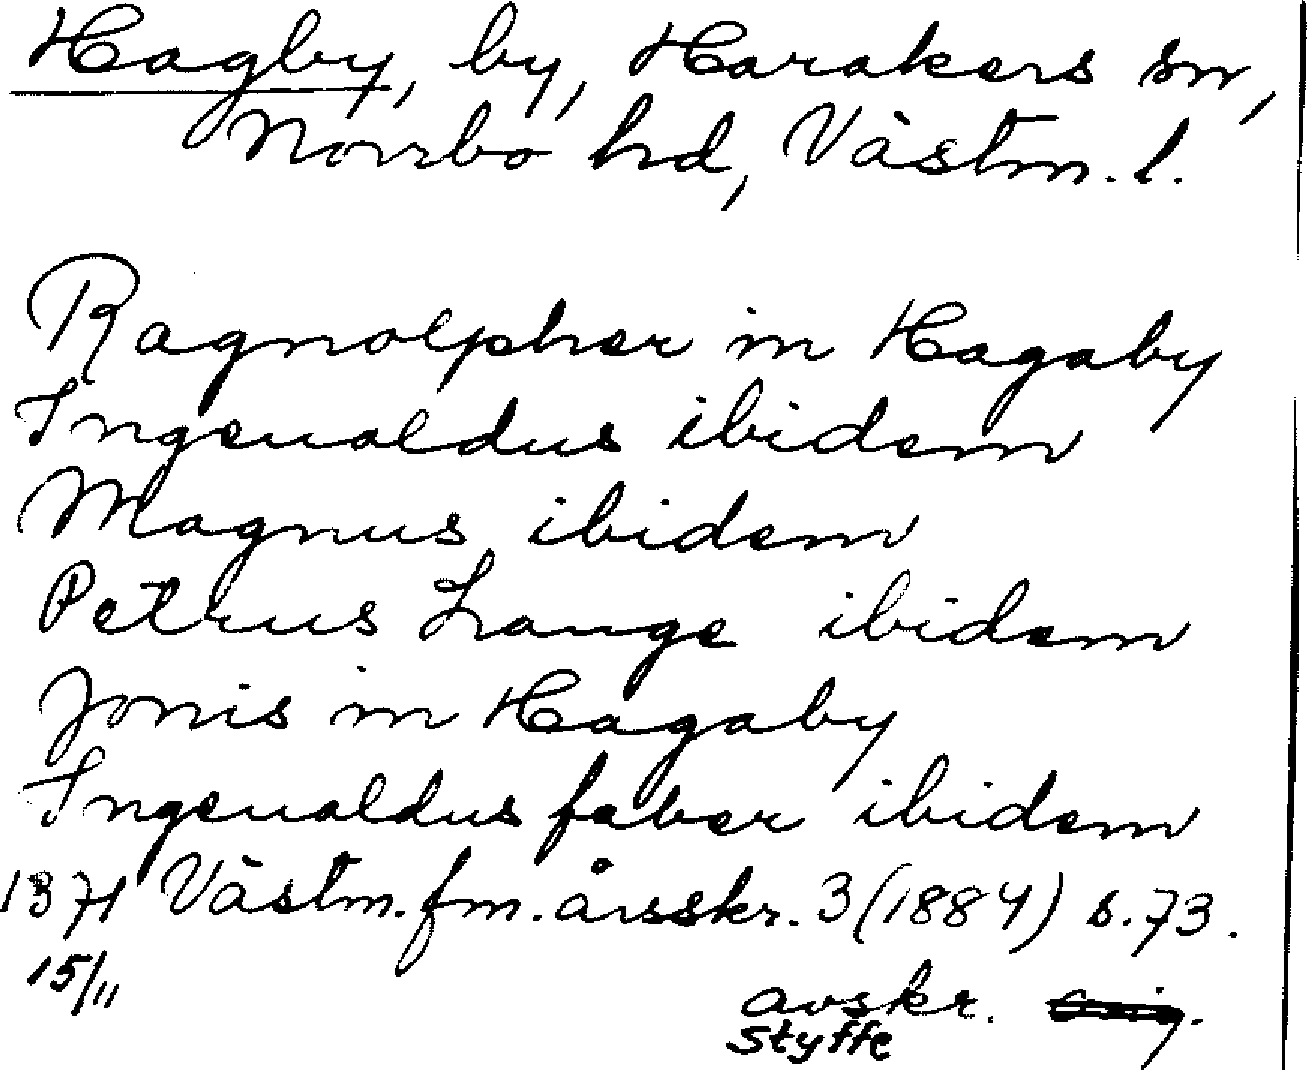 Hagby, by, Harakers sn,
Norrbo hd, Västm. l.
Ragnolpher in Hagaby
Ingeualdus ibidem
Magnus ibidem
Petrus Lange ibidem
Jonis in Hagaby
Ingeualdus faber ibidem
1371 Västm. fm. årsskr. 3 (1884) s. 73.
15/11
avskr.
Styffe